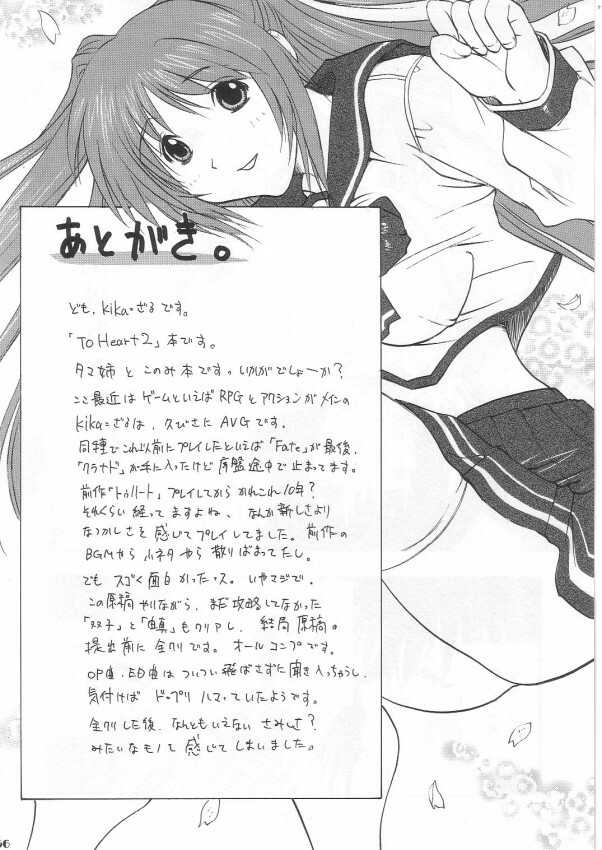 あとがき。
ども、kikaざるです。
「To Heart2」本です。
タマ姉とこのみ本です。いかがでしょーか?
ここ最近はゲームといえばRPGとアクションがメインの
kikaざるは、久びさにAVGです。
同種でこれ以前にプレイしたといえば「Fate」が最後、
「クラナド」が手に入ったけど序盤途中で止まってます。
前作「トゥハート」プレイしてからかれこれ10年?
それくらい経ってますよね、なんか新しさより
なつかしさを感じてプレイしてました。前作の
BGMやら小ネタやら散りばまってたし。
でもスゴく面白かったっス。いやマジで。
この原稿やりながら、まだ攻略してなかった
「双子」と「由真」もクリアし、結局原稿。
提出前に全クリです。オールコンプです。
OP曲・ED曲はついつい飛ばさずに聞き入っちゃうし、
気付けばドップリハマっていたようです。
全クリした後、なんともいえないさみしさ?
みたいなモノを感じてしまいました。